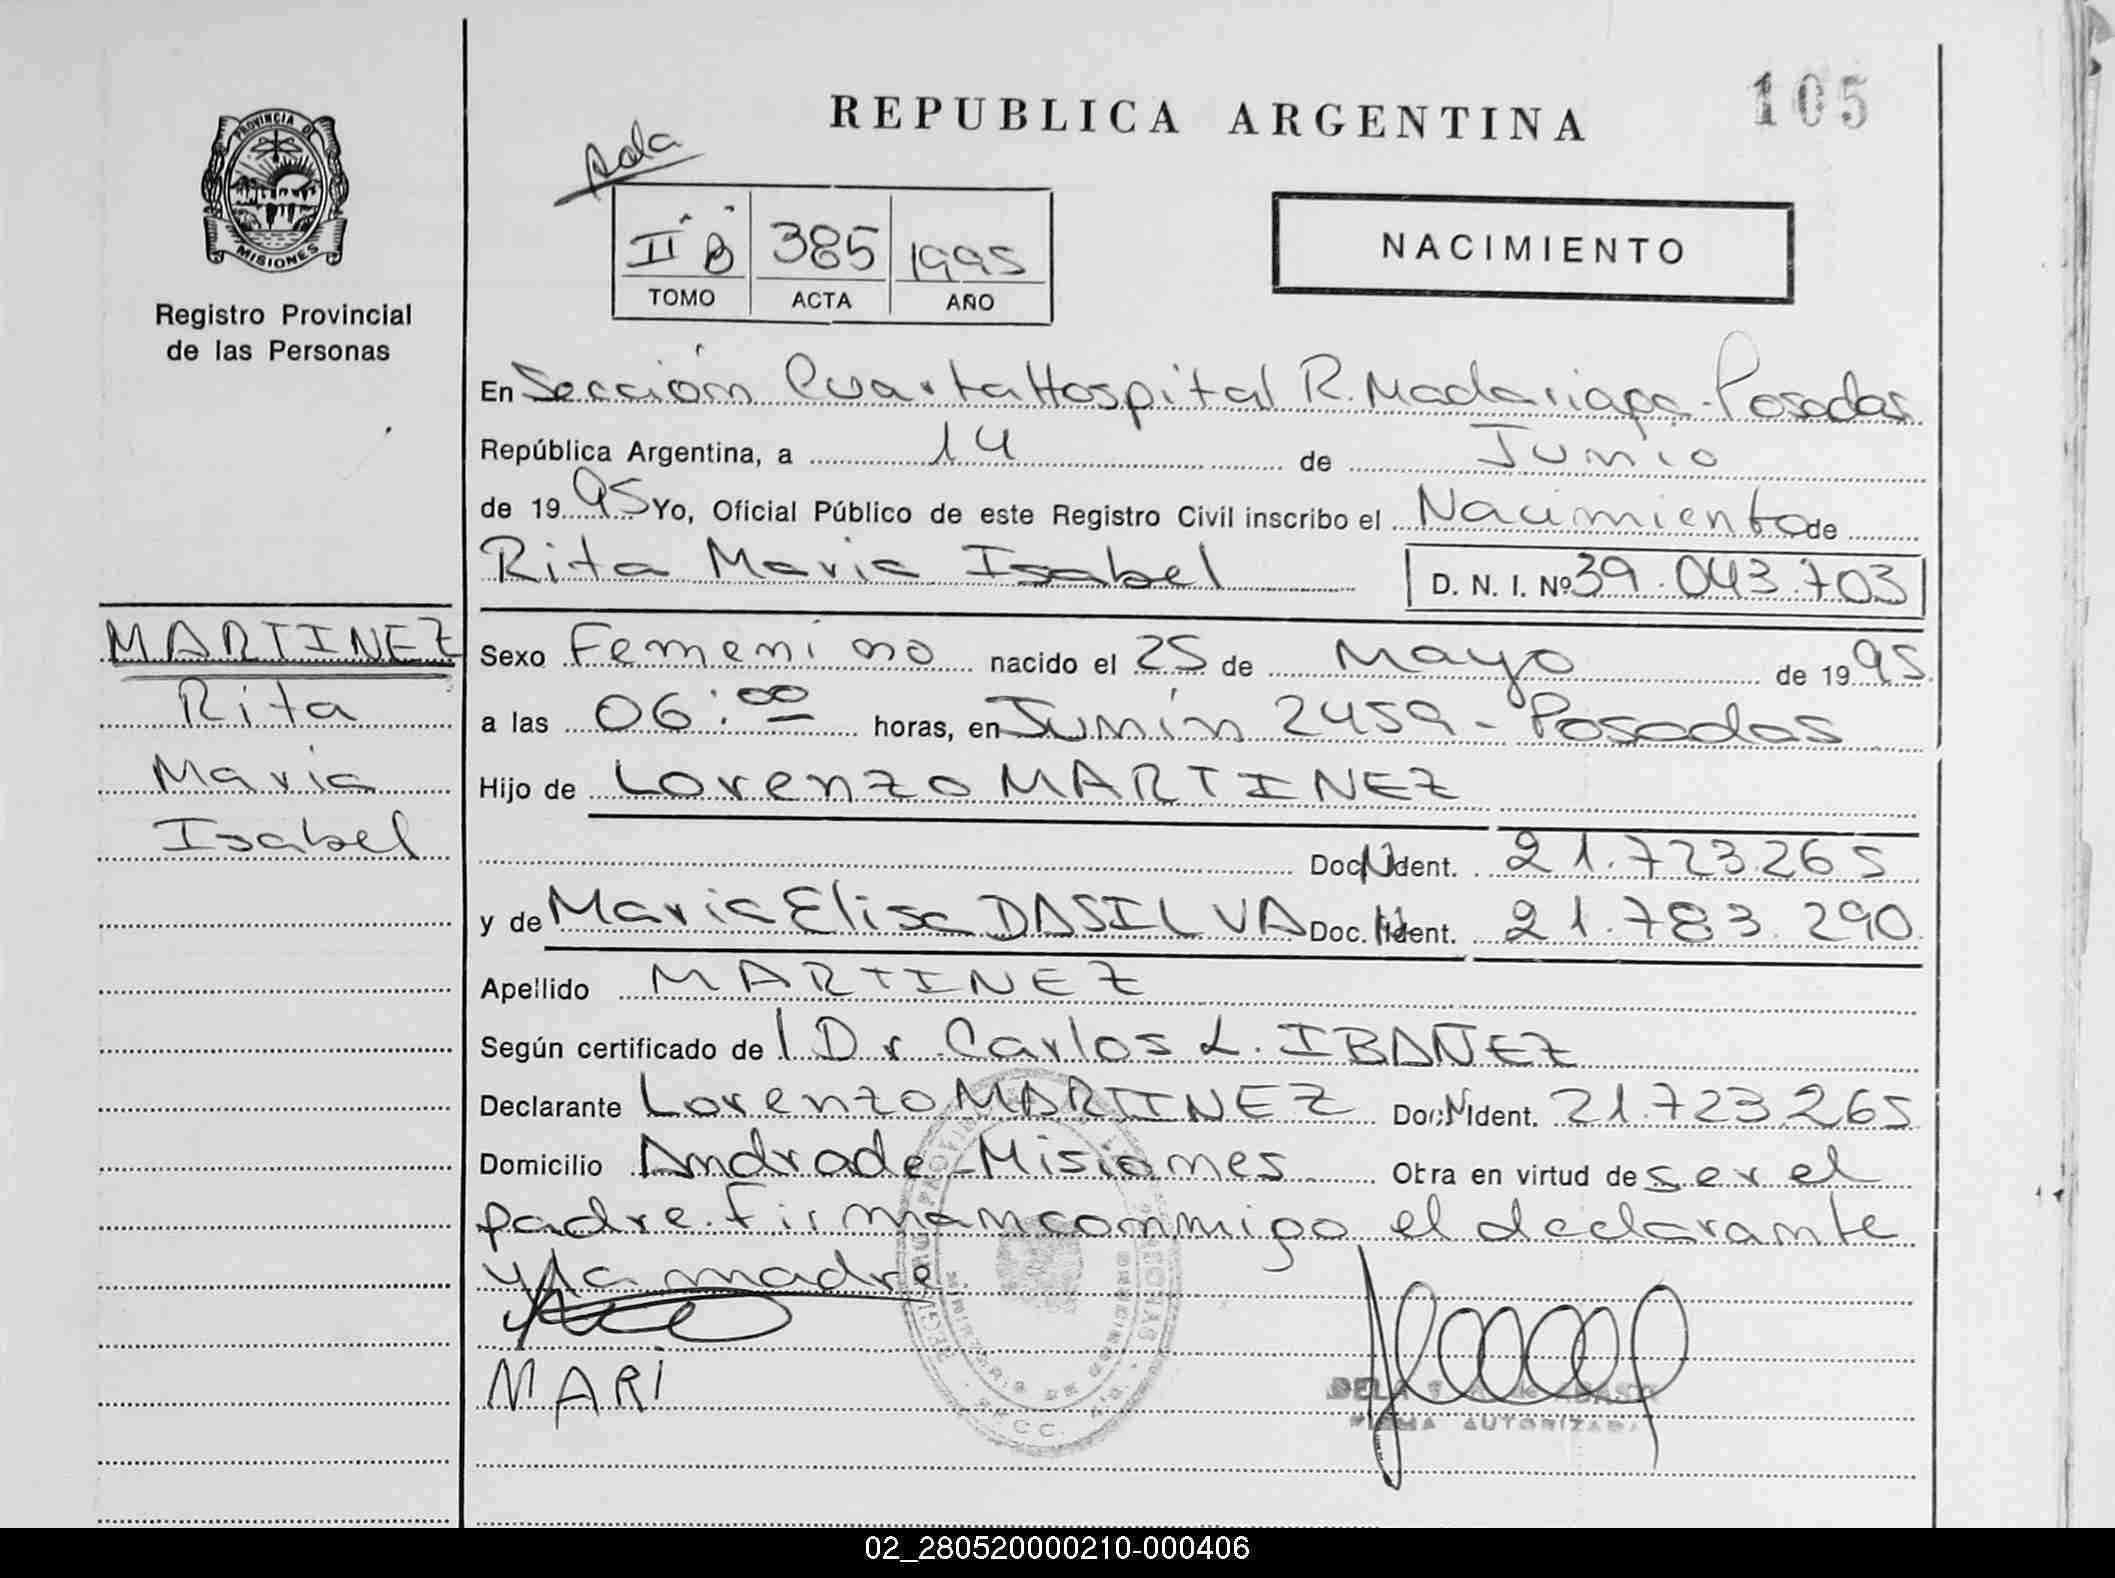 REPUBLICA ARGENTINA
105
PROVINCIA DE
MISIONES
Registro Provincial
de las Personas
II B 385 1995
TOMO ACTA AÑO
NACIMIENTO
En Sección Cuarta Hospital R. Madariaga - Posadas
República Argentina, a 14 de Junio
de 1995 Yo, Oficial Público de este Registro Civil inscribo el Nacimiento de
Rita Maria Isabel D. N. I. Nº 39.043.703
MARTINEZ
Rita
Maria
Isabel
Sexo Femenino nacido el 25 de Mayo de 1995
a las 06:00 horas, en Junín 2459 - Posadas
Hijo de Lorenzo MARTINEZ
Doc. Ident. 21.723.265
y de Maria Elisa DASILVA Doc. Ident. 21.783.290
Apellido MARTINEZ
Según certificado del Dr. Carlos L. IBAÑEZ
Declarante Lorenzo MARTINEZ Doc. Ident. 21.723.265
Domicilio Andrade - Misiones Obra en virtud de ser el
padre. Firman conmigo el declarante
y la madre
MARI
FIRMA AUTORIZADA
02_280520000210-000406